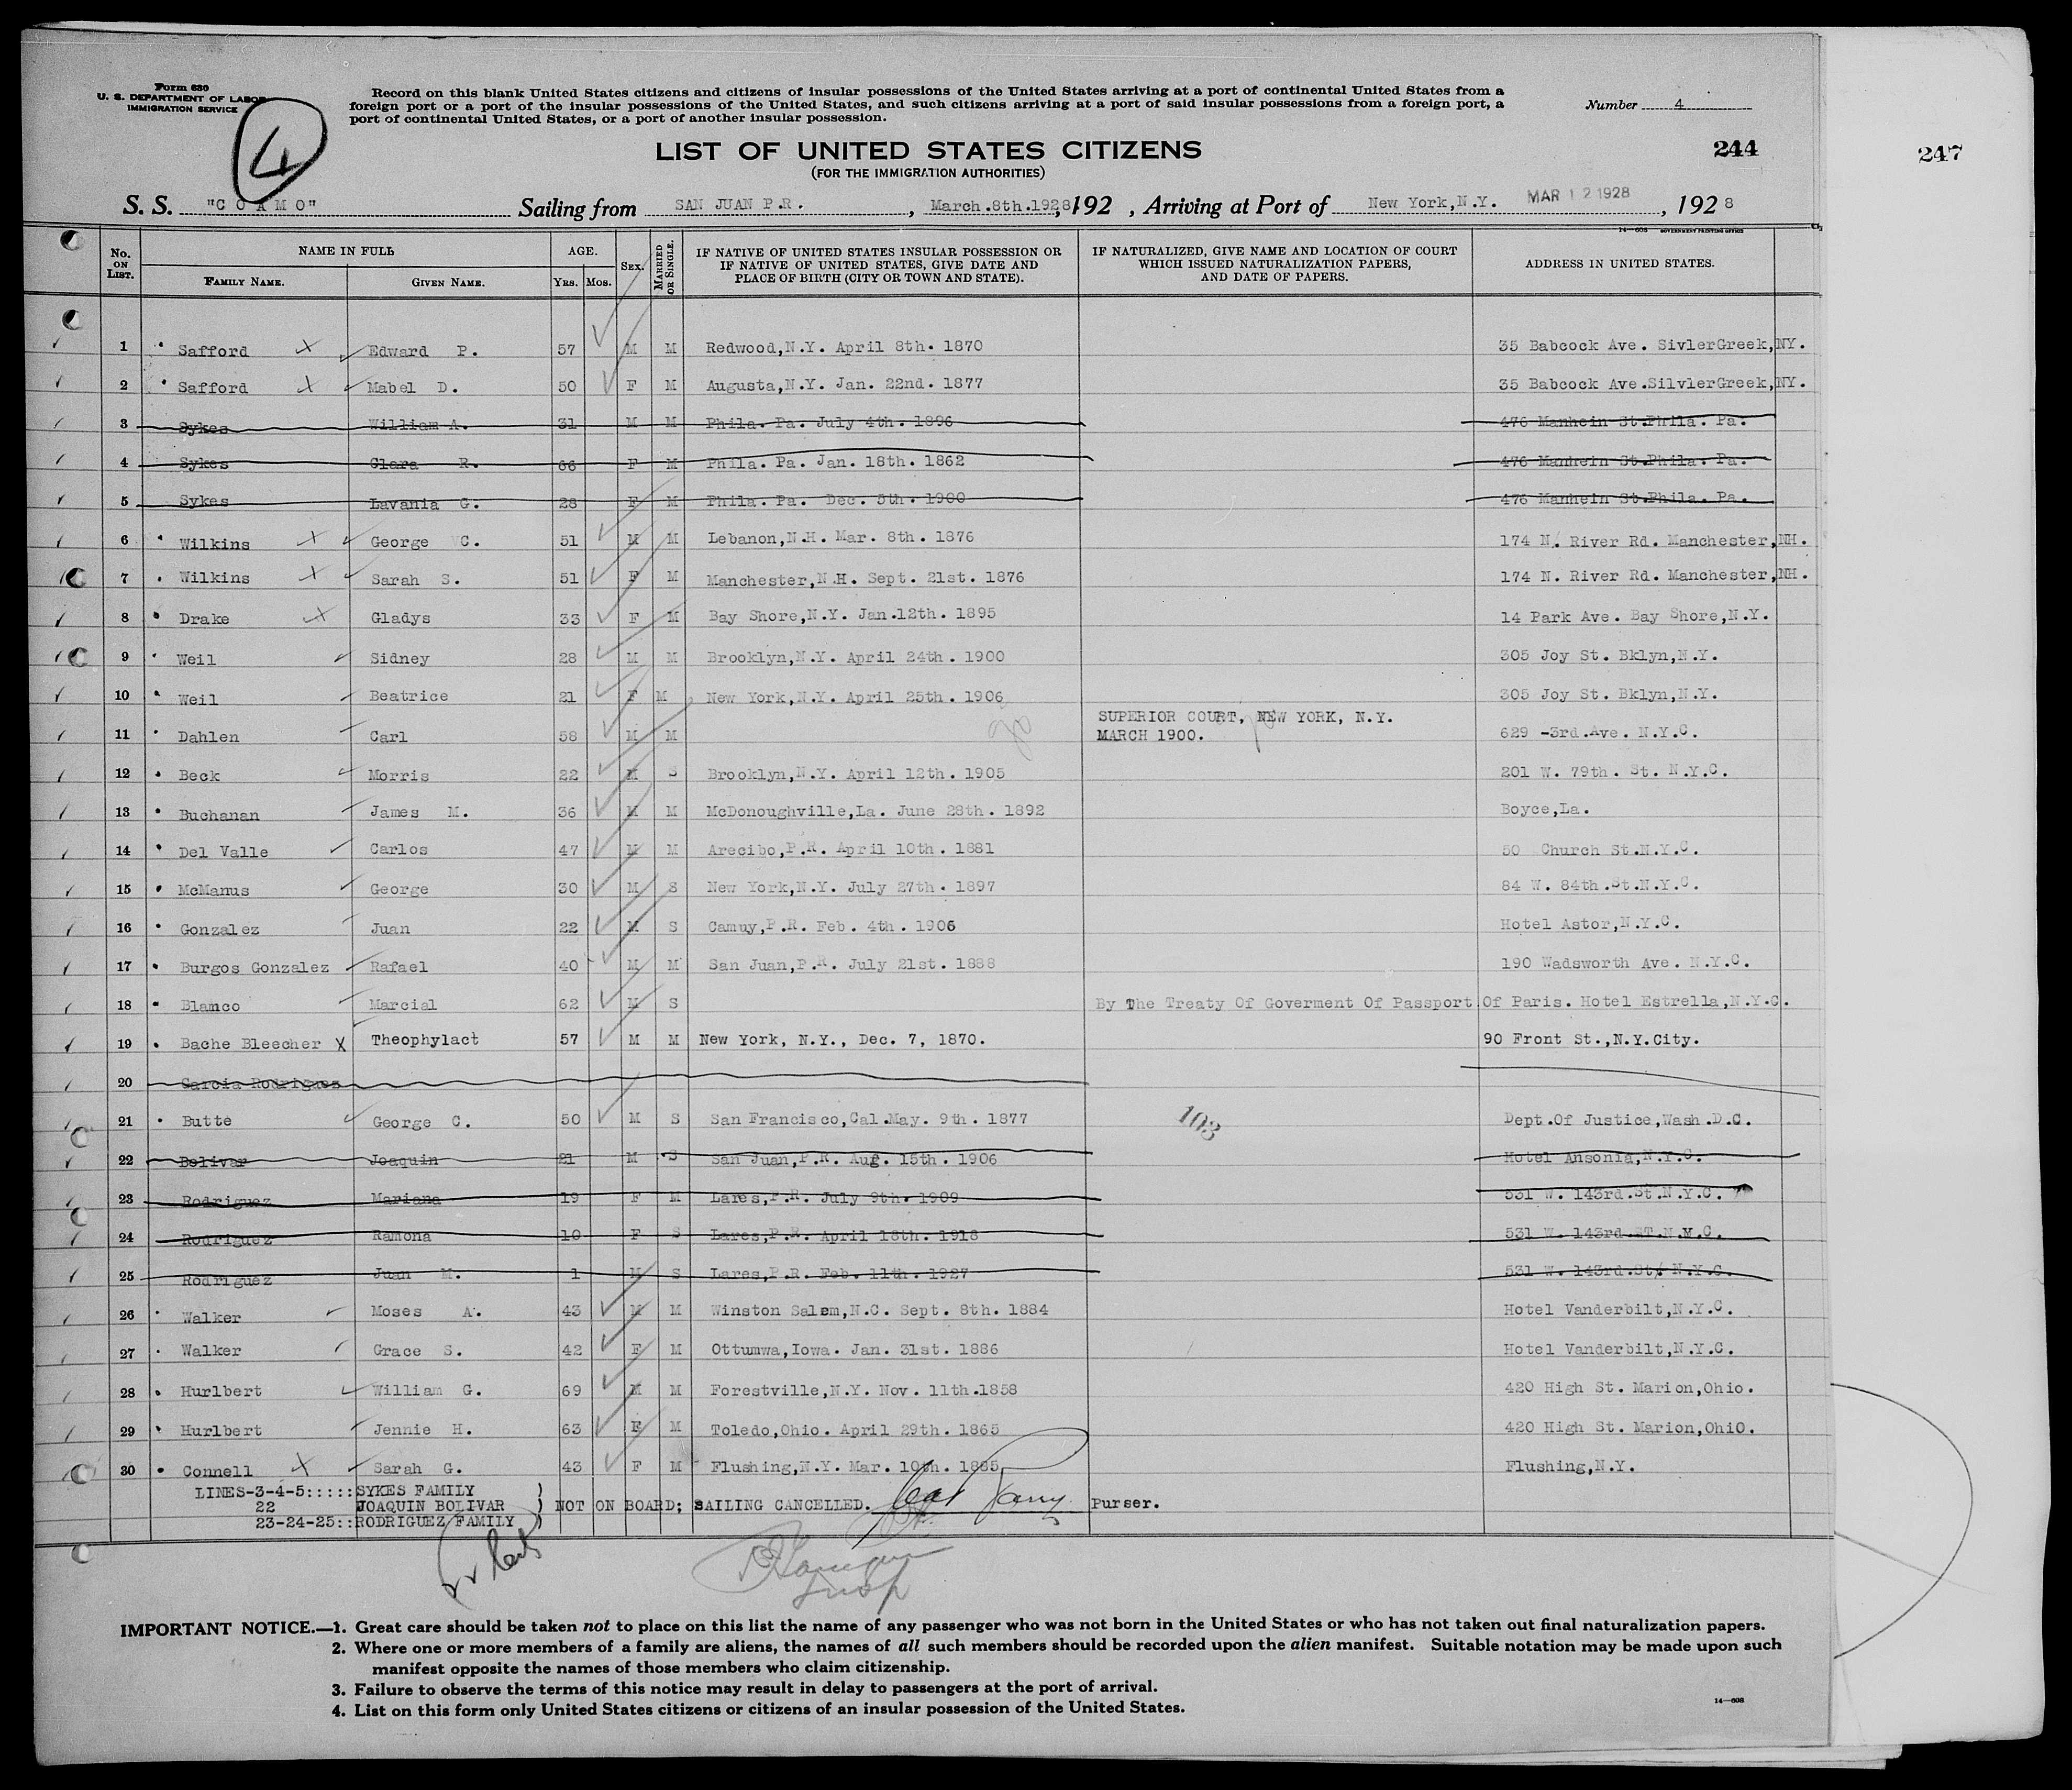 Form 630
U. S. DEPARTMENT OF LABOR
IMMIGRATION SERVICE
4
Record on this blank United States citizens and citizens of insular possessions of the United States arriving at a port of continental United States from a
foreign port or a port of the insular possessions of the United States, and such citizens arriving at a port of said insular possessions from a foreign port, a
port of continental United States, or a port of another insular possession.
Number 4
LIST OF UNITED STATES CITIZENS
(FOR THE IMMIGRATION AUTHORITIES)
244
247
S. S. "C O A M O" Sailing from SAN JUAN P.R. , March.8th.1928, 192 , Arriving at Port of New York,N.Y. MAR 12 1928 , 1928
14—608 GOVERNMENT PRINTING OFFICE
No. ON LIST. NAME IN FULL FAMILY NAME. GIVEN NAME. AGE. YRS. MOS. SEX. MARRIED OR SINGLE. IF NATIVE OF UNITED STATES INSULAR POSSESSION OR IF NATIVE OF UNITED STATES, GIVE DATE AND PLACE OF BIRTH (CITY OR TOWN AND STATE). IF NATURALIZED, GIVE NAME AND LOCATION OF COURT WHICH ISSUED NATURALIZATION PAPERS, AND DATE OF PAPERS. ADDRESS IN UNITED STATES.
1 Safford Edward P. 57 M M Redwood,N.Y. April 8th. 1870 35 Babcock Ave. SivlerGreek,NY.
2 Safford Mabel D. 50 F M Augusta,N.Y. Jan. 22nd. 1877 35 Babcock Ave.SilvlerGreek,NY.
3 Sykes William A. 31 M M Phila. Pa. July 4th. 1896 476 Manhein St.Phila. Pa.
4 Sykes Clara R. 66 F M Phila. Pa. Jan. 18th. 1862 476 Manhein St.Phila. Pa.
5 Sykes Lavania G. 28 F M Phila. Pa. Dec. 5th. 1900 476 Manhein St.Phila. Pa.
6 Wilkins George C. 51 M M Lebanon,N.H. Mar. 8th. 1876 174 N. River Rd. Manchester,NH.
7 Wilkins Sarah S. 51 F M Manchester,N.H. Sept. 21st. 1876 174 N. River Rd. Manchester,NH.
8 Drake Gladys 33 F M Bay Shore,N.Y. Jan.12th. 1895 14 Park Ave. Bay Shore,N.Y.
9 Weil Sidney 28 M M Brooklyn,N.Y. April 24th. 1900 305 Joy St. Bklyn,N.Y.
10 Weil Beatrice 21 F M New York,N.Y. April 25th. 1906 305 Joy St. Bklyn,N.Y.
11 Dahlen Carl 58 M M SUPERIOR COURT, NEW YORK, N.Y. MARCH 1900. 629 -3rd.Ave. N.Y.C.
12 Beck Morris 22 M S Brooklyn,N.Y. April 12th. 1905 201 W. 79th. St. N.Y.C.
13 Buchanan James M. 36 M M McDonoughville,La. June 28th. 1892 Boyce,La.
14 Del Valle Carlos 47 M M Arecibo,P.R. April 10th. 1881 50 Church St.N.Y.C.
15 McManus George 30 M S New York,N.Y. July 27th. 1897 84 W. 84th.St.N.Y.C.
16 Gonzalez Juan 22 M S Camuy,P.R. Feb. 4th. 1906 Hotel Astor,N.Y.C.
17 Burgos Gonzalez Rafael 40 M M San Juan,P.R. July 21st. 1888 190 Wadsworth Ave. N.Y.C.
18 Blamco Marcial 62 M S By The Treaty Of Goverment Of Passport Of Paris. Hotel Estrella,N.Y.C.
19 Bache Bleecher X Theophylact 57 M M New York, N.Y., Dec. 7, 1870. 90 Front St.,N.Y.City.
20 Garcia Rodriguez
21 Butte George C. 50 M S San Francisco,Cal.May. 9th. 1877 103 Dept.Of Justice,Wash.D.C.
22 Bolivar Joaquin 21 M S San Juan,P.R. Aug. 15th. 1906 Hotel Ansonia,N.Y.C.
23 Rodriguez Mariana 19 F M Lares,P.R. July 9th. 1909 531 W. 143rd.St.N.Y.C.
24 Rodriguez Ramona 10 F S Lares,P.R. April 18th. 1918 531 W. 143rd.ST.N.M.C.
25 Rodriguez Juan M. 1 M S Lares,P.R. Feb. 11th. 1927 531 W. 143rd.St. N.Y.C.
26 Walker Moses A. 43 M M Winston Salem,N.C. Sept. 8th. 1884 Hotel Vanderbilt,N.Y.C.
27 Walker Grace S. 42 F M Ottumwa,Iowa. Jan. 31st. 1886 Hotel Vanderbilt,N.Y.C.
28 Hurlbert William G. 69 M M Forestville,N.Y. Nov. 11th.1858 420 High St. Marion,Ohio.
29 Hurlbert Jennie H. 63 F M Toledo,Ohio. April 29th. 1865 420 High St. Marion,OhiO.
30 Connell Sarah G. 43 F M Flushing,N.Y. Mar. 10th. 1885 Flushing,N.Y.
LINES-3-4-5:::::SYKES FAMILY
22 JOAQUIN BOLIVAR } NOT ON BOARD; SAILING CANCELLED. Purser.
23-24-25::RODRIGUEZ FAMILY
Insp
IMPORTANT NOTICE.—1. Great care should be taken not to place on this list the name of any passenger who was not born in the United States or who has not taken out final naturalization papers.
2. Where one or more members of a family are aliens, the names of all such members should be recorded upon the alien manifest. Suitable notation may be made upon such
manifest opposite the names of those members who claim citizenship.
3. Failure to observe the terms of this notice may result in delay to passengers at the port of arrival.
4. List on this form only United States citizens or citizens of an insular possession of the United States.
14—608